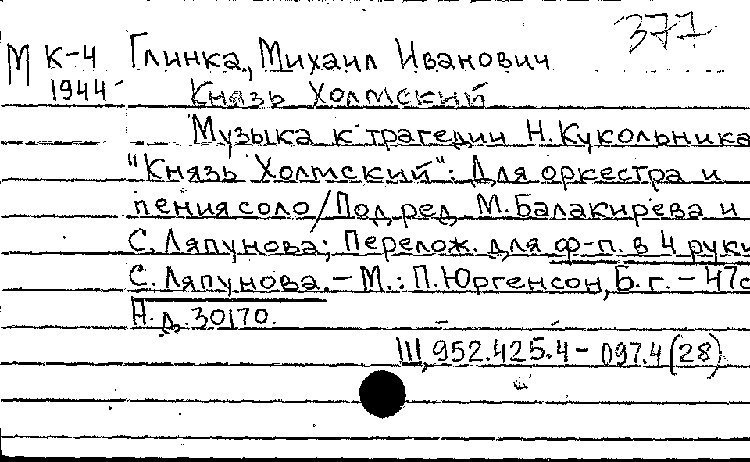 377
М К-4 Глинка, Михаил Иванович
1944 Князь Холмский
Музыка к трагедии Н. Кукольника
"Князь Холмский": Для оркестра и
пения соло/Под ред. М. Балакирева и
С. Ляпунова; Перелож. для ф-п. в 4 руки
С. Ляпунова. – М.: П. Юргенсон, Б. г. – 47с
Н. д. 30170.
III, 952.425.4 – 097.4 (28)